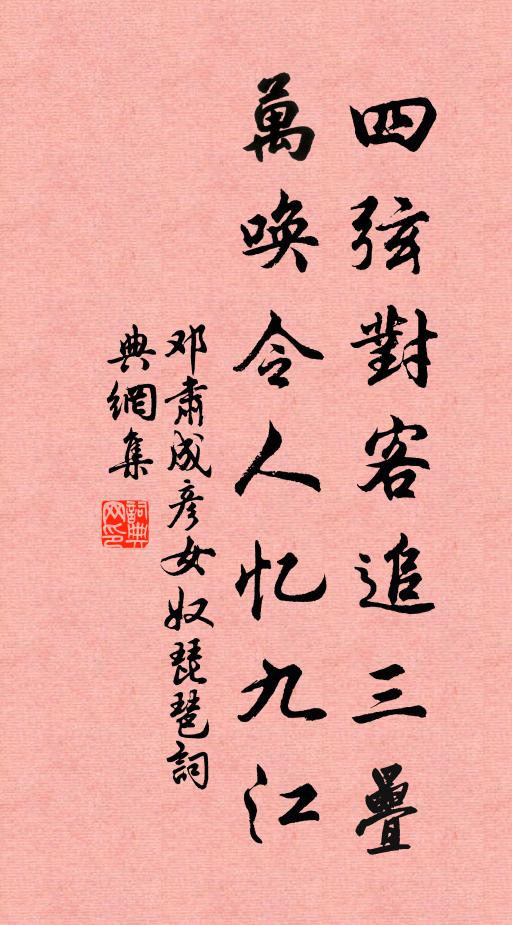 四弦對客追三疊
萬唤令人忆九江
邓肅成彦女奴琵琶詞
典網集
詞典
网印